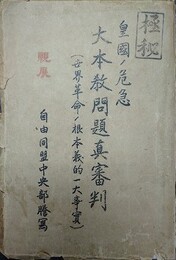 極秘
皇國ノ危急
大本教問題真審判
(世界革命ノ根本義的一大事実)
自由同盟中央部謄写